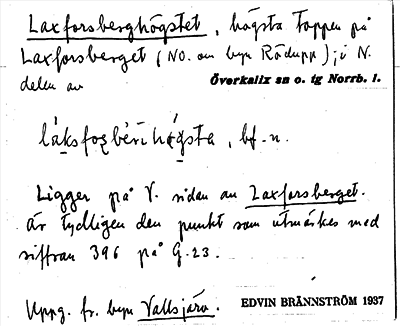 Laxforsberghögstet, högsta toppen på
Laxforsberget (NO. om byn Rödupp); i N.
delen av Överkalix sn o. tg Norrb. l.
låksfoʂbèri högsta, bf. n.
Ligger på V. sidan av Laxforsberget.
är tydligen den punkt som utmärkes med
siffran 396 på G.23.
Uppg. fr. byn Vallsjärv.
EDVIN BRÄNNSTRÖM 1937